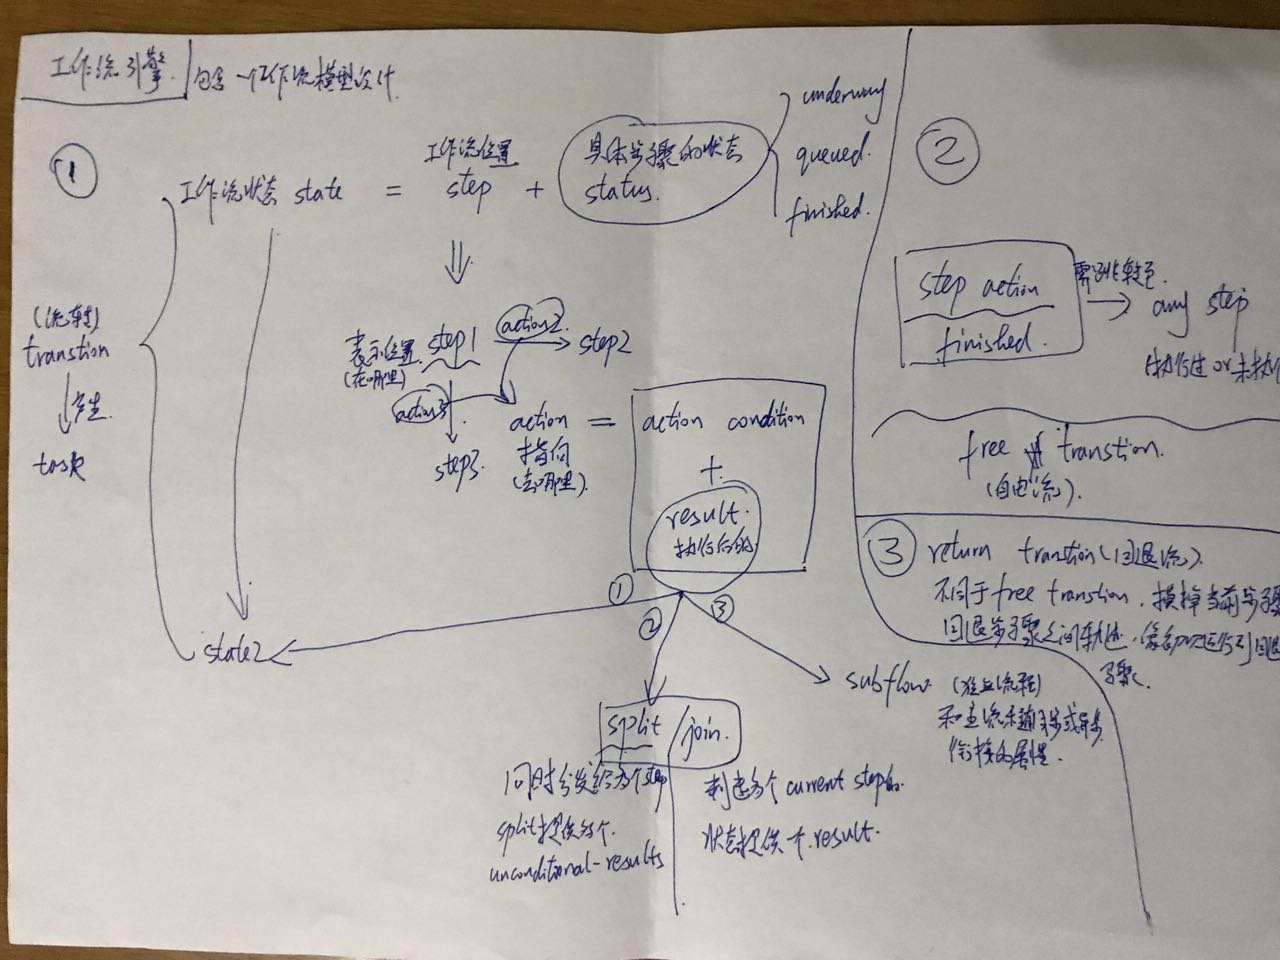 工作流引擎
包含一个工作流模型设计
①
工作流状态 state = 工作流位置 step + 具体步骤的状态 status.
underway
queued.
finished.
(流转)
transtion
产生.
task
表示位置
(在哪里)
step1
action2.
step2
action3
step3.
action
指向
(去哪里).
=
action condition
+
result.
执行后的
①
②
③
state2
split / join.
同时分发给多个step
split提供多个.
unconditional-results
判断多个 current step的
状态提供一个 result.
subflow. (独立流程)
和主流
衔接的属性.
②
step action
finished.
any step
执行过 or 未执
free transtion.
(自由流).
③ return transtion (回退流).
不同于free transtion, 摸掉当前步骤
回退步骤之间轨迹,
骤.